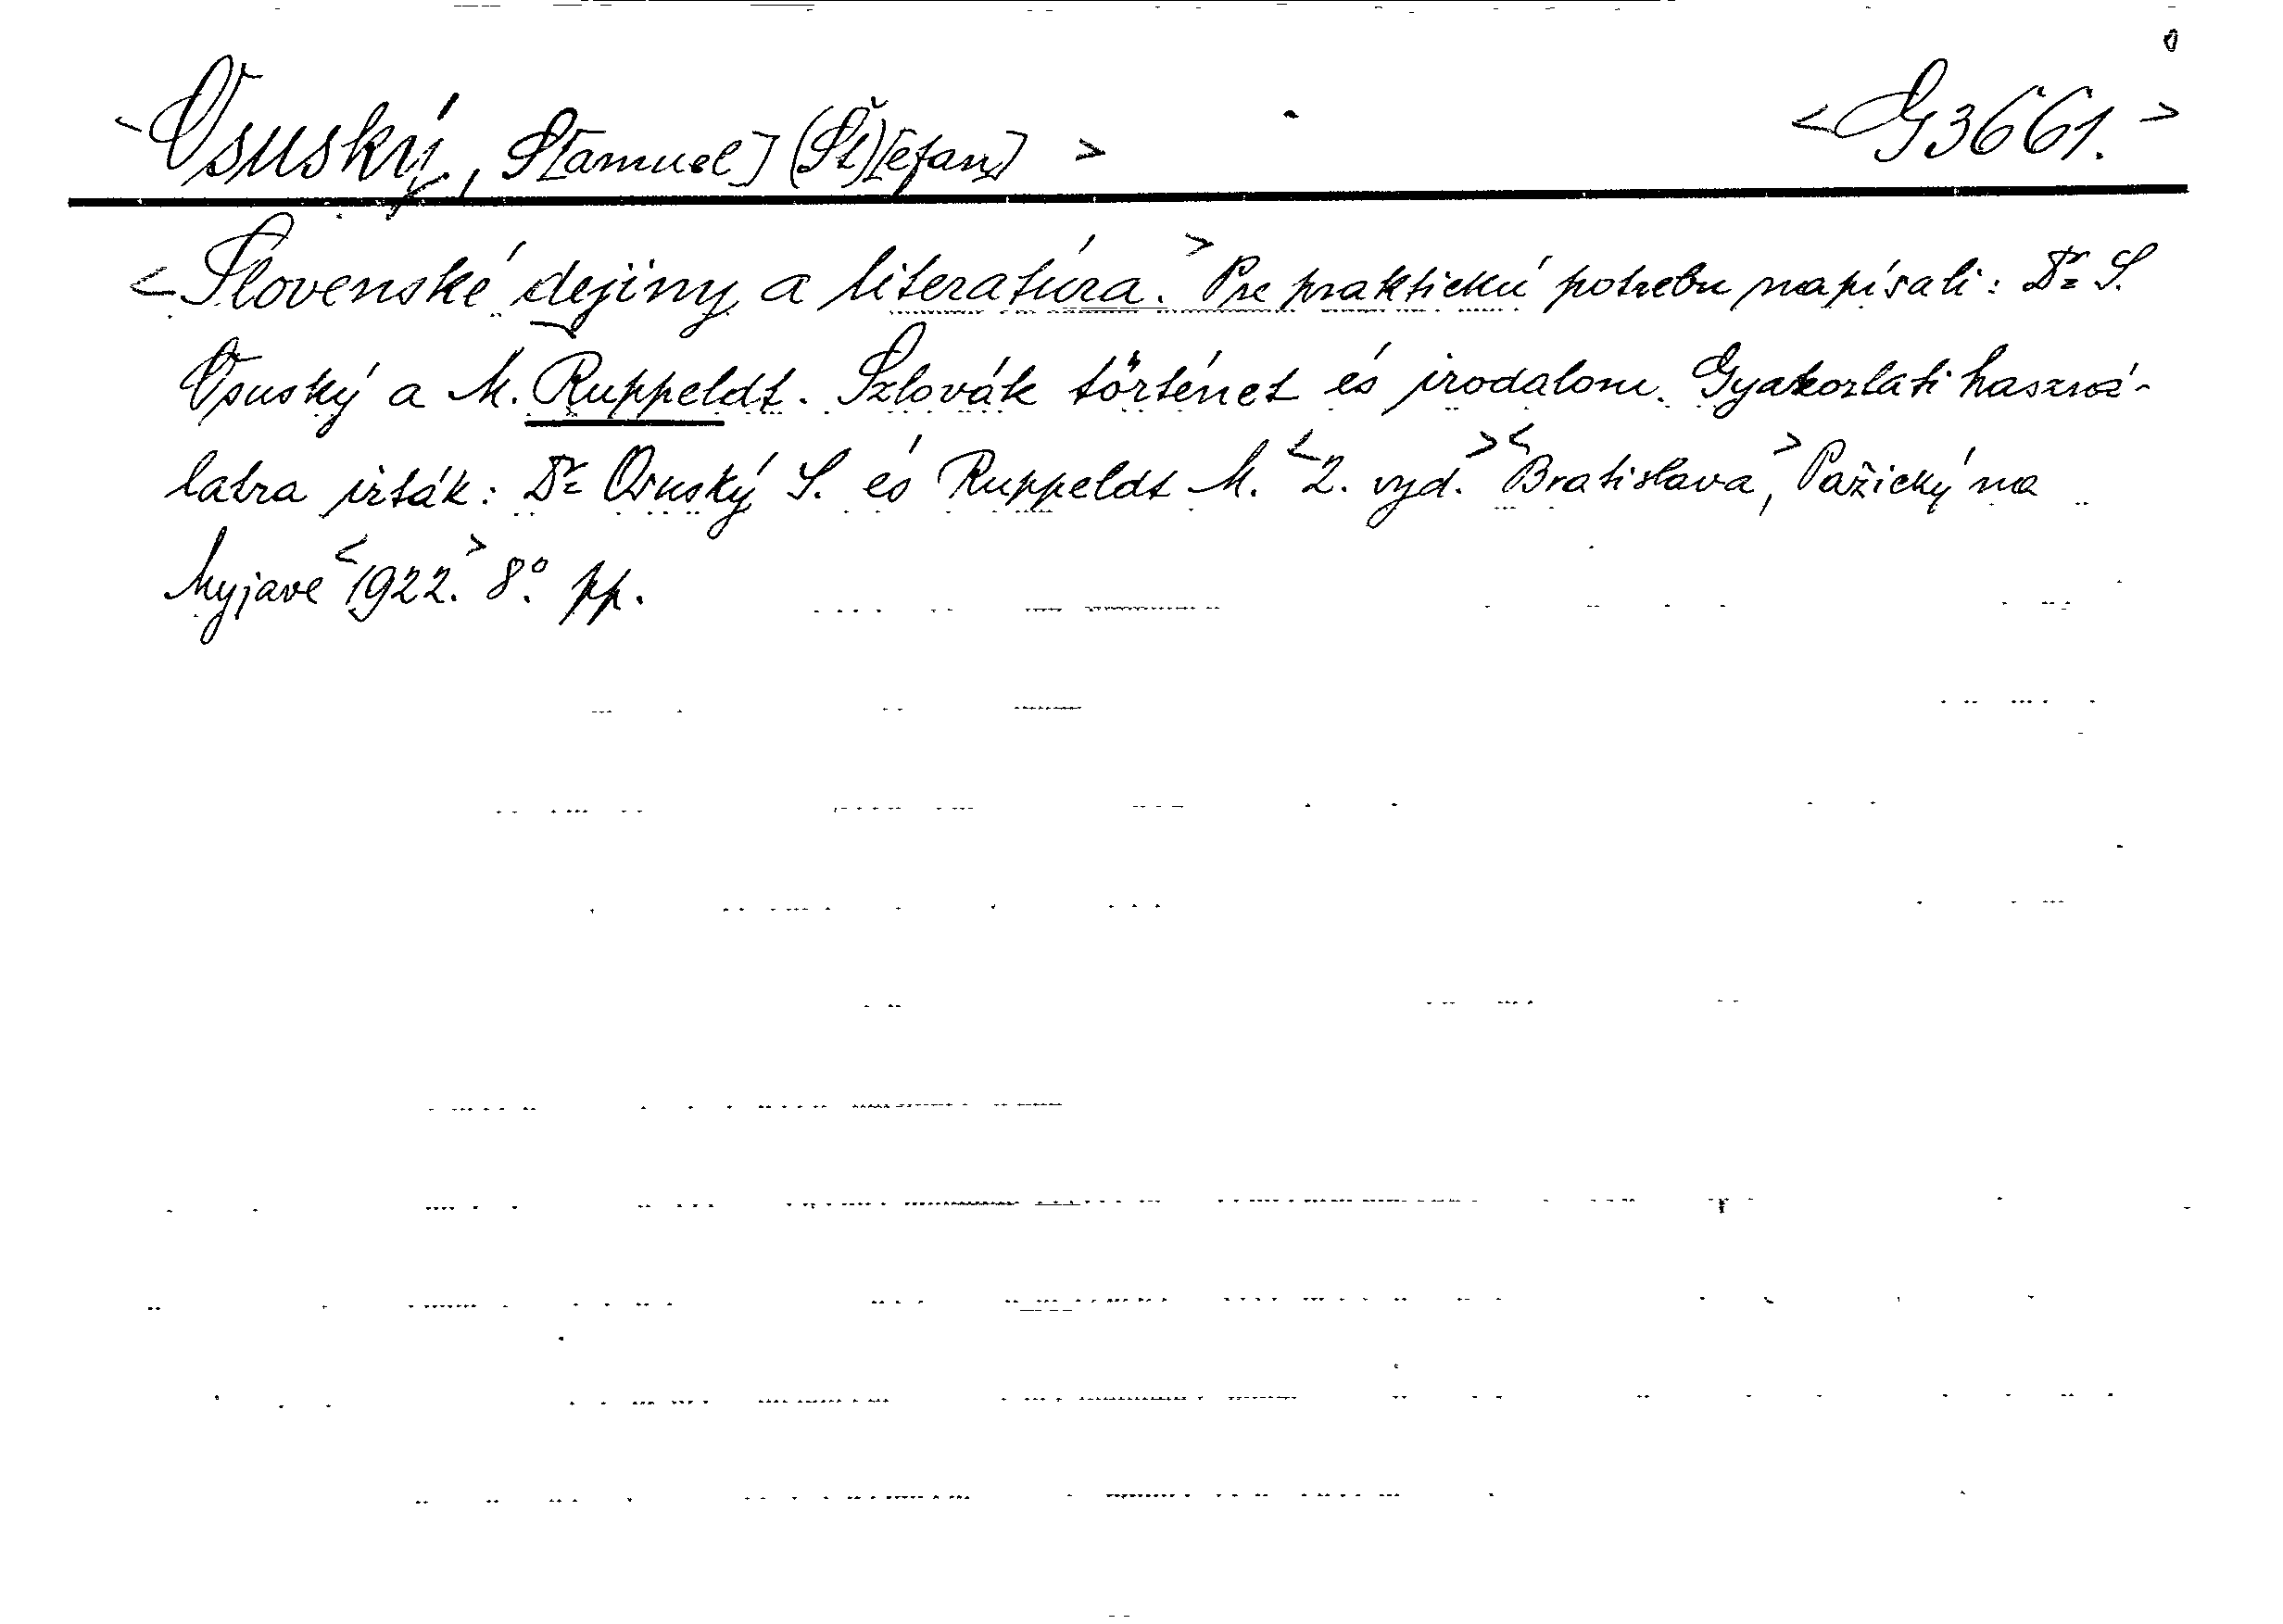 <Osuský, S[amuel] (Št)[efan]> <G3661.>
<Slovenské dejiny a literatúra.> Pre praktickú potrebu napísali: Dr S.
Osuský a M. Ruppeldt. Szlovák történet és irodalom. Gyakorlati haszná-
latra irták: Dr Osuský S. és Ruppeldt M. <2. vyd.> <Bratislava,> Pažický na
Myjave <1922.> 8° pp.